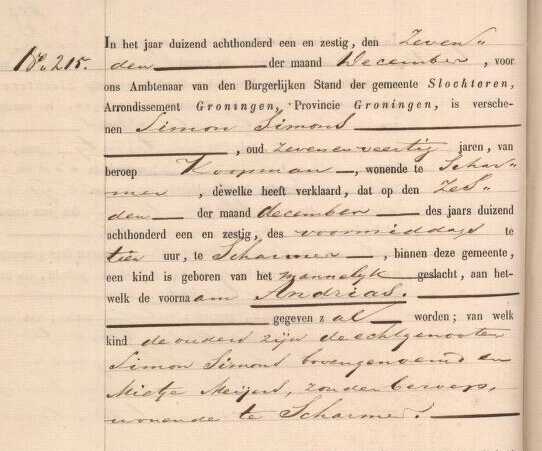 No. 215.
In het jaar duizend achthonderd een en zestig, den Zeven"
den der maand December, voor
ons Ambtenaar van den Burgerlijken Stand der gemeente Slochteren,
Arrondissement Groningen, Provincie Groningen, is versche-
nen Simon Simons
, oud zevenenveertig jaren, van
beroep Koopman, wonende te Schar"
mer, dewelke heeft verklaard, dat op den Zes"
den der maand december des jaars duizend
achthonderd een en zestig, des voormiddags te
tien uur, te Scharmer, binnen deze gemeente,
een kind is geboren van het mannelijk geslacht, aan het-
welk de voornaam Andrias.
gegeven zal worden; van welk
kind de ouders zijn de echtgenooten
Simon Simons bovengenoemd en
Mietje Meijers, zonder beroep,
wonende te Scharmer.